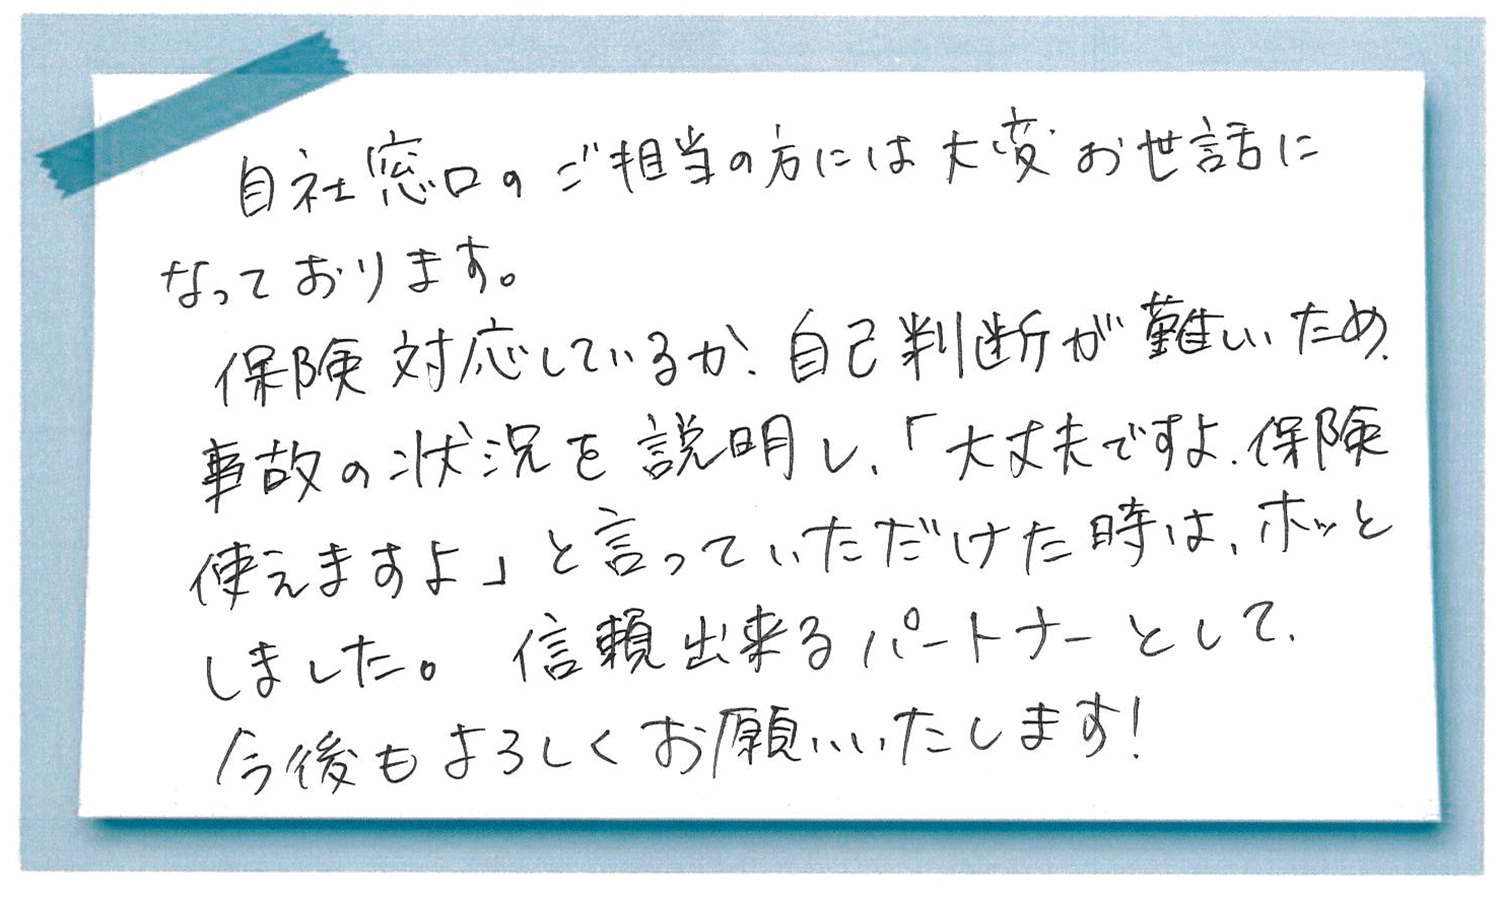 自社窓口のご担当の方には大変お世話に
なっております。
保険対応しているか、自己判断が難しいため、
事故の状況を説明し、「大丈夫ですよ、保険
使えますよ」と言っていただけた時は、ホッと
しました。 信頼出来るパートナーとして、
今後もよろしくお願いいたします!